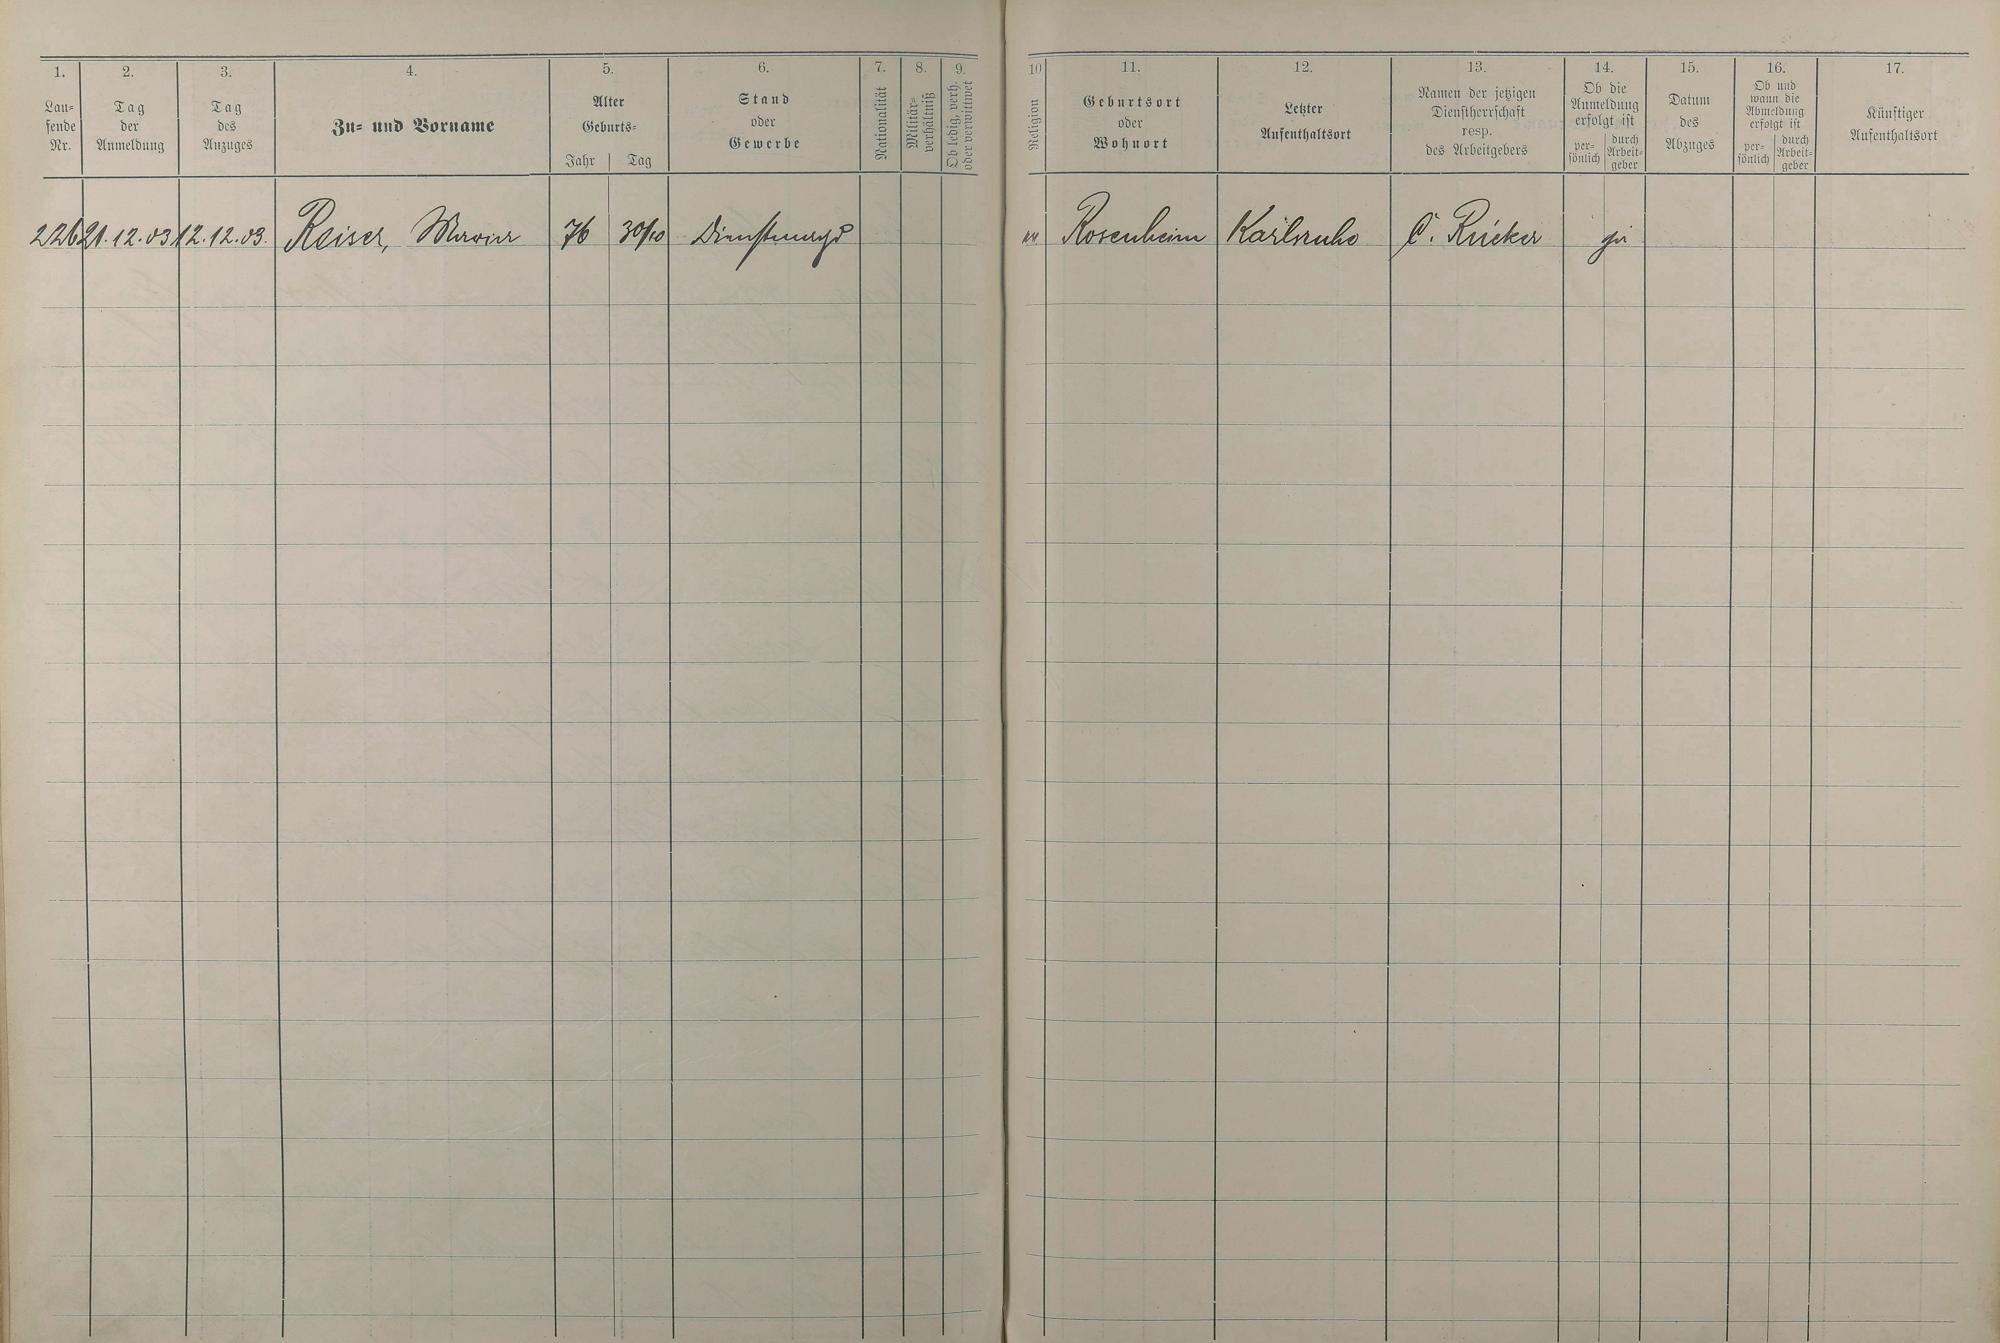 1. 2. 3. 4. 5. 6. 7. 8. 9.
Lau-
fende
Nr.
Tag
der
Anmeldung
Tag
des
Anzuges
Zu- und Vorname
Alter
Geburts-
Jahr Tag
Stand
oder
Gewerbe
Nationalität
Militär-
verhältniß
Ob ledig, verh.
oder verwittwet
10 11. 12. 13. 14. 15. 16. 17.
Religion
Geburtsort
oder
Wohnort
Letzter
Aufenthaltsort
Namen der jetzigen
Dienstherrschaft
resp.
des Arbeitgebers
Ob die
Anmeldung
erfolgt ist
per-
sönlich
durch
Arbeit-
geber
Datum
des
Abzuges
Ob und
wann die
Abmeldung
erfolgt ist
per-
sönlich
durch
Arbeit-
geber
Künftiger
Aufenthaltsort
226 21.12.03 12.12.03. Reiser, Maria 76 30/10 Dienstmagd
Rosenheim Karlsruhe C. Rücker ja